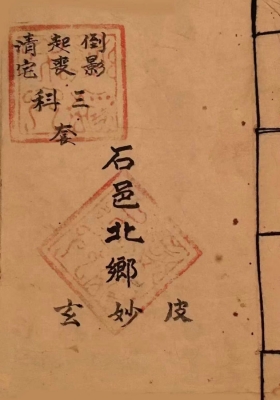 倒影
起喪
清宅
三科
套
石邑北鄉
皮妙玄